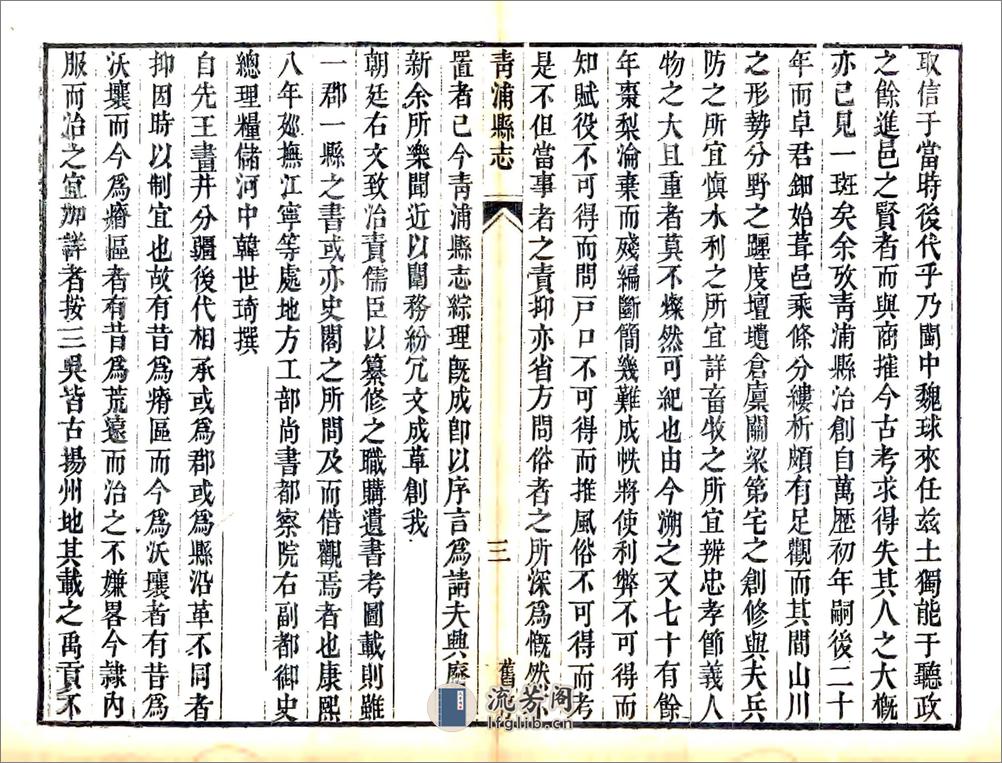 取信于當時後代乎乃閩中魏球來任兹土獨能于聽政
之餘進邑之賢者而與商搉今古考求得失其人之大概
亦已見一斑矣余攷靑浦縣治創自萬歷初年嗣後二十
年而卓君鈿始葺邑乘條分縷析頗有足觀而其間山川
之形勢分野之躔度壇壝倉廪關梁第宅之創修與夫兵
防之所宜愼水利之所宜詳畜牧之所宜辨忠孝節義人
物之大且重者莫不燦然可紀也由今溯之又七十有餘
年棗梨淪棄而殘編斷簡幾難成帙將使利弊不可得而
知賦役不可得而問戸口不可得而推風俗不可得而考
是不但當事者之責抑亦省方問俗者之所深爲慨然
靑浦縣志
三
舊
置者已今靑浦縣志綜理旣成卽以序言爲請夫興廢
新余所樂聞近以闈務紛冗文成草創我
朝廷右文致治責儒臣以纂修之職購遺書考圖載則雖
一郡一縣之書或亦史閣之所問及而借觀焉者也康熙
八年廵撫江寧等處地方工部尚書都察院右副都御史
總理糧儲河中韓世琦撰
自先王畫井分疆後代相承或爲郡或爲縣沿革不同者
抑因時以制宜也故有昔爲瘠區而今爲沃壤者有昔爲
沃壤而今爲瘠區者有昔爲荒遠而治之不嫌畧今隷内
服而治之宜加詳者按三吳皆古揚州地其載之禹貢不
流芳阁
lfglib.cn